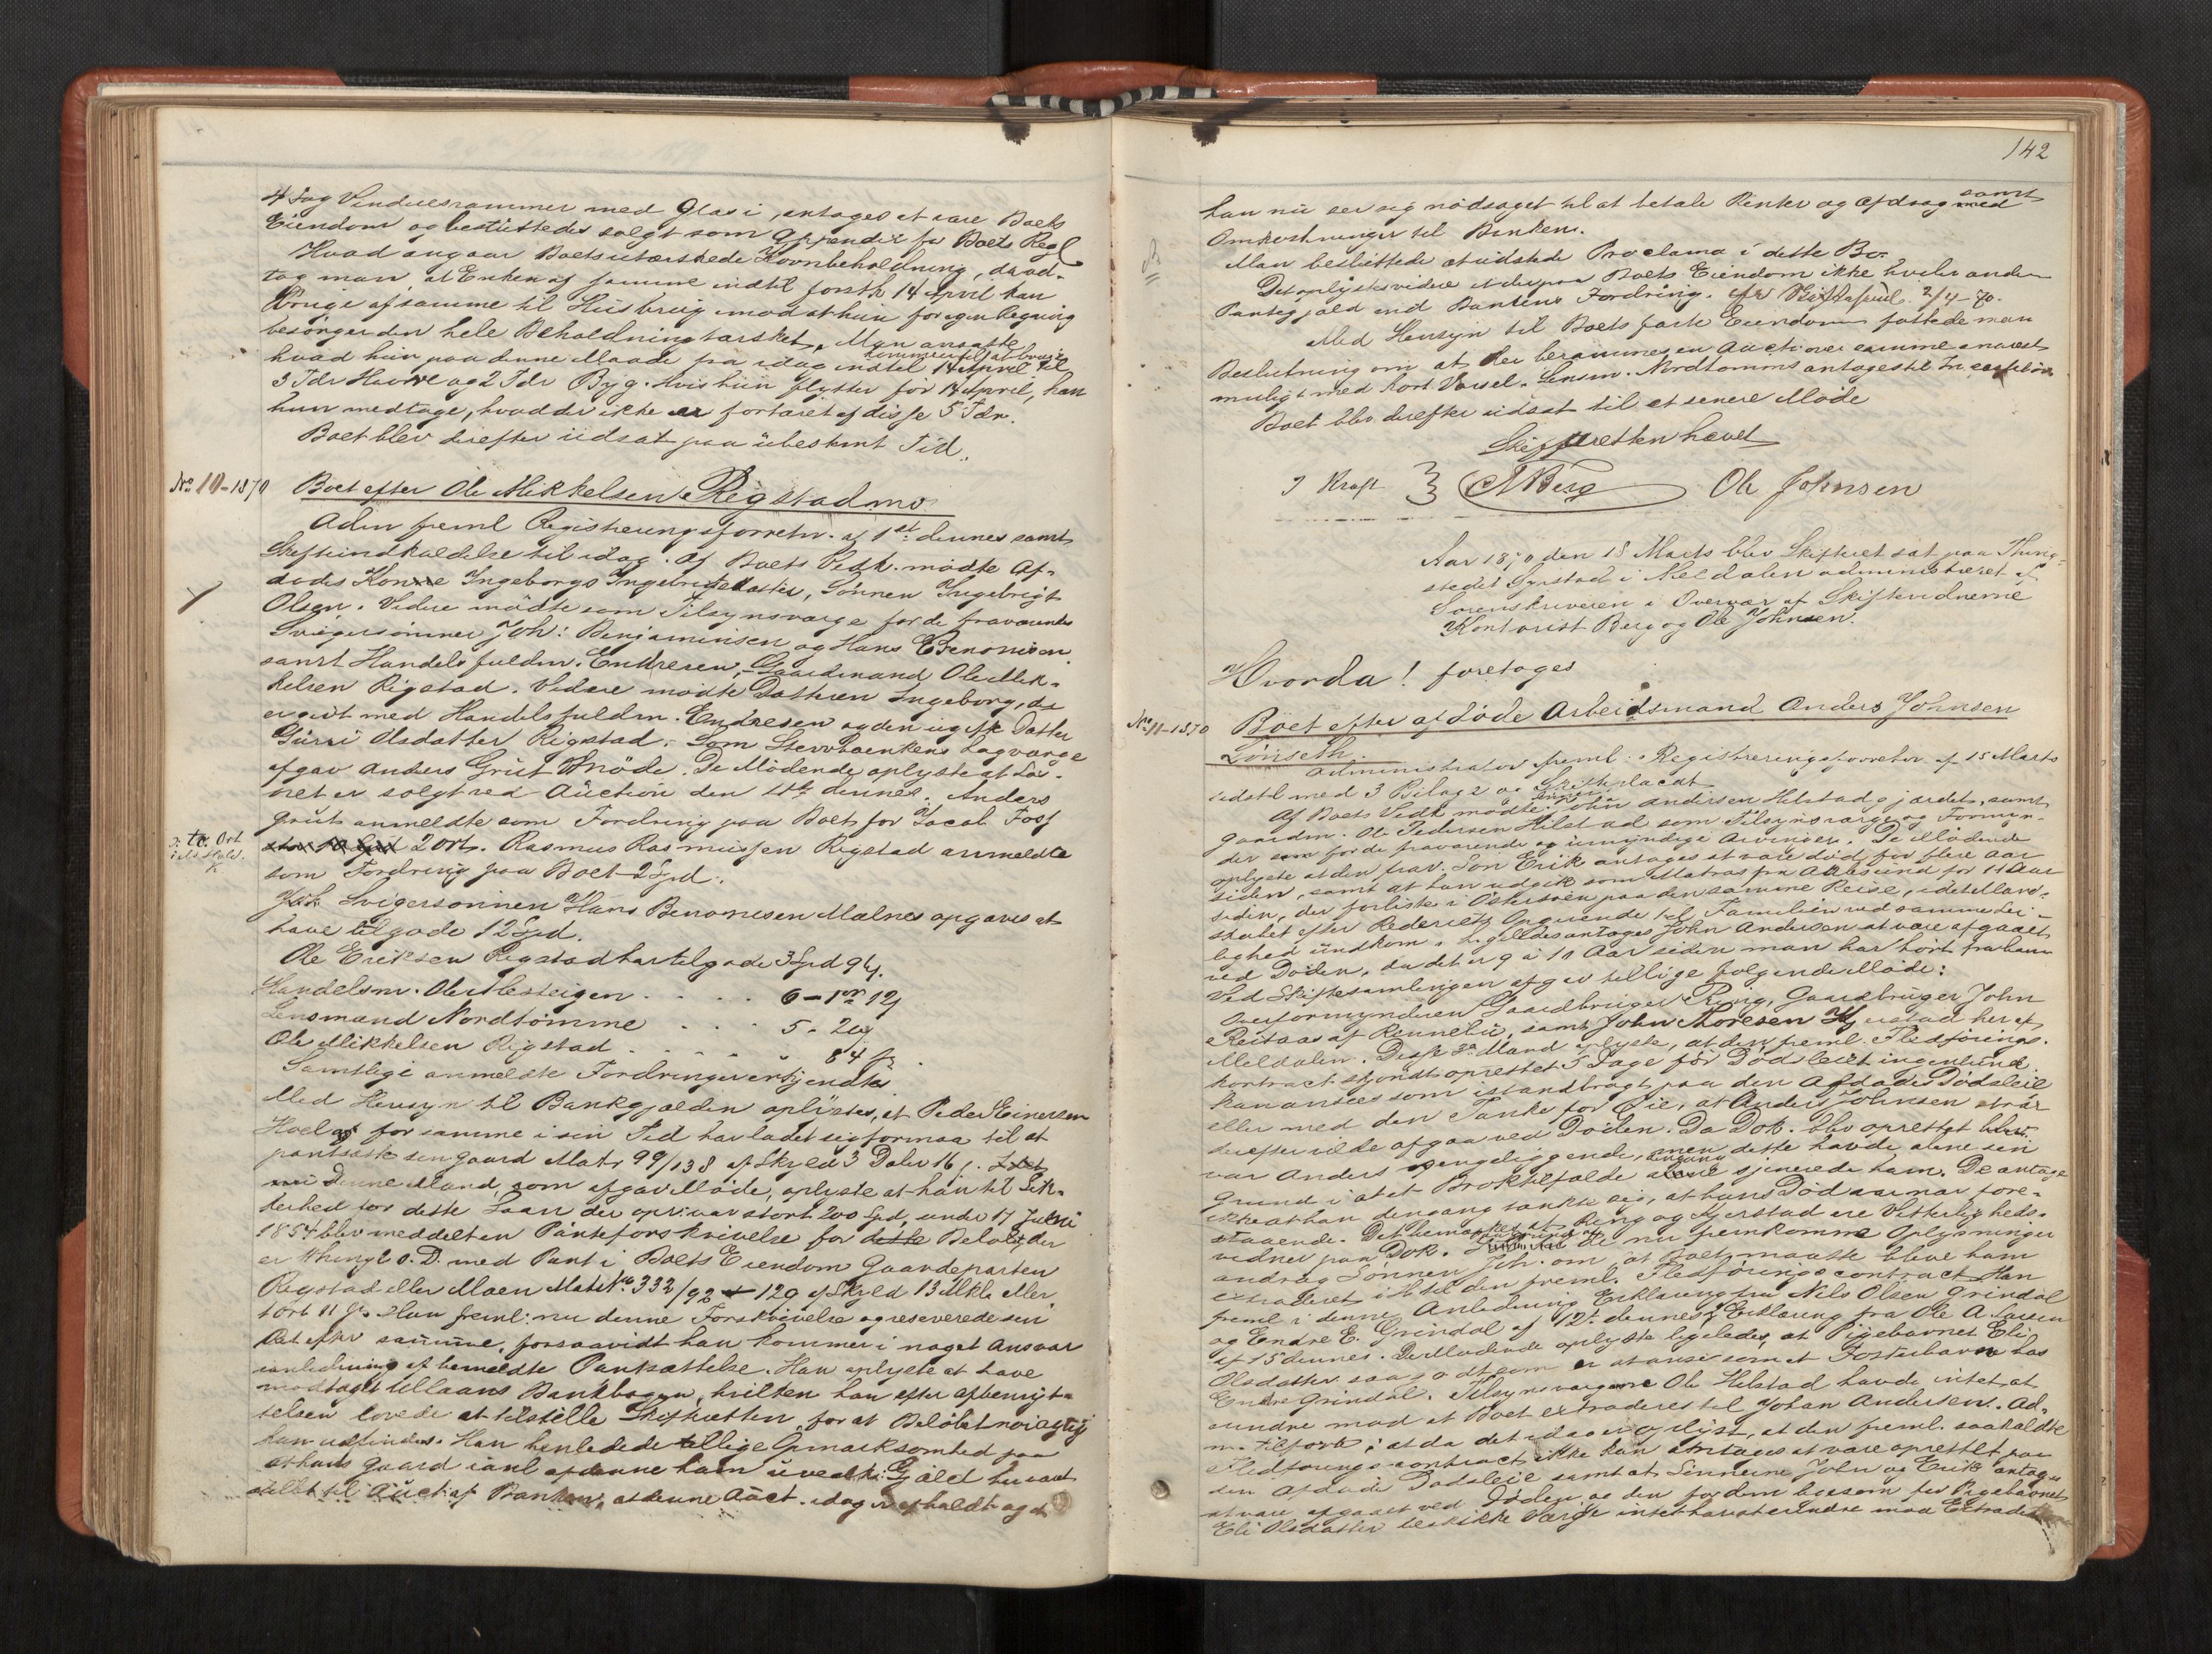 4 Fag Vinduesrammer med Glas i, antages at være Boets
Eiendom og besluttedes solgt som Appendix for Boets Regl
Hvad angaar Boets utærskede Kornbeholdning, da ved-
tog man, at Enken af samme indtil førstk 14 April kan
bruge af samme til Husbrug mod at hun for egen Regning
besørger den hele Beholdning tærsket. Man ansatte
hvad hun paa denne Maade fra idag indtil 14 April kommer til at bruge til
3 Tdr Havre og 2 Tdr Byg. Hvis hun flytter før 14 April, kan
hun medtage, hvad der ikke er fortæret af disse 5 Tdr.
Boet blev derefter udsat paa ubestemt Tid.
No 10-1870 Boet efter Ole Mikkelsen Rigstadmo
Adm freml Registreringsforretn. af 1st dennes samt
Skifteindkaldelse til idag. Af Boets Vedk. mødte Af-
dødes Kone Ingeborg Ingebrigtsdatter, Sønnen Ingebrigt
Olsen. Videre mødte som Tilsynsværge for de fraværende
Svigersønner Joh: Benjaminsen og Hans Benonisen
samt Handelsfuldm. Endresen, Gaardmand Ole Mik-
kelsen Rigstad. Videre mødte Datteren Ingeborg, der
er givt med Handelsfuldm. Endresen og den ugifte Datter
Gurri Olsdatter Rigstad. Som Stervboenkens Lagværge
afgav Anders Grut Møde. De Mødende oplyste at Løs-
øret er solgt ved Auction den 11te dennes. Anders
Grut anmeldte som Fordring paa Boet for Jacob Foss
2 Ort. Rasmus Rasmussen Rigstad anmeldte
som Fordring paa Boet 2 Spd.
Svigersønnen Hans Benonisen Malnes opgaves at
have tilgode 12 Spd.
Ole Eriksen Rigstad har tilgode 3 Spd 9 s.
Handelsm. Ole Mesteigen . . . . 6 - 1 ort 12 s
Lensmand Nordtømme . . . 5. 20 s
Ole Mikkelsen Rigstad . . . . . 84 s
Samtlige anmeldte Fordringer erkjendtes
Med Hensyn til Bankgjælden oplystes, at Peder Einersen
Hoel for samme i sin Tid har ladet sig formaa til at
pantsætte sin gaard Matr 99/138 af Skyld 3 Daler 16 s.
Denne Mand, som afgav Møde, oplyste at han til Sik-
kerhed for dette Laan der opr. var stort 200 Spd, under 17 Juni
1854 blev meddelt en Panteforskrivelse for Beløb, der
er thinglæst s. D. med Pant i Boets Eiendom Gaardeparten
Rigstad eller Moen Matr No. 332/92 129 af Skyld 13 Mkl eller
1 ort 11 s. Han freml. nu denne Forskrivelse og reserverede sin
Ret efter samme, forsaavidt han kommer i noget Ansvar
i anledning af bemeldte Pantsættelse. Han oplyste at have
modtaget til laans Bankbogen, hvilken han efter afbenyt-
telsen lovede at tilstille Skifteretten for at Beløbet nøiagtig
kan udfindes. Han henledede tillige Opmærksomhed paa
at hans gaard i anl af denne ham uvedk. Gjæld nu var
stillet til Auct af Banken, at denne Auct. idag er afholdt og at
142
han nu ser sig nødsaget til at betale Renter og Afdrag samt
Omkostninger til Banken.
Man besluttede at udstede Proclama i dette Bo.
Det oplystes videre at der paa Boets Eiendom ikke hviler anden
Pantegjæld end Bankens Fordring. 2/4-70.
Med Hensyn til Boets faste Eiendom fattede man
Beslutning om at der berammes en Auction over samme snarest
muligt med kort Varsel. Lensm. Nordtømme antages til Incassator
Boet blev derefter udsat til et senere Møde
Skifteretten hævet
J Kraft } Berg Ole Johnsen
Aar 1870 den 18 Marts blev Skifteret sat paa Thing-
stedet Syrstad i Meldalen administreret af
Sorenskriveren i Overvær af Skiftevidnerne
Kontorist Berg og Ole Johnsen.
Hvorda! foretages
No 11-1870 Boet efter afdøde Arbeidsmand Anders Johnsen
Lønseth.
Administrator freml: Registreringsforretn. af 15 Marts
sidstl med 3 Bilage og Skifteplacat
Af Boets Vedk mødte Sønnen Johan Andersen Hilstadgjærdet, samt
gaardm. Ole Pedersen Hilstad som Tilsynsværge og Formyn-
der som for de fraværende og umyndige Arvinger. De Mødende
oplyste at den frav. Søn Erik antages at være død for flere Aar
siden, samt at han udgik som Matros fra Aalesund for 11 Aar
siden, der forliste i Østersøen paa den samme Reise, idet
skabet efter Rederiets Opgivende til Familien ved samme Lei-
lighed undkom. Ligeledes antages John Andersen at være afgaaet
ved Døden, da det er 9 à 10 Aar siden man har hørt fra ham
Ved Skiftesamlingen afgav tillige følgende Møde:
Overformynderen Gaardbruger Ring, Gaardbruger John
Reitaas af Rennebu, samt John Thoresen Hjerstad her af
Meldalen. Disse 3de Mænd oplyste, at den freml. Fledførings-
kontract skjøndt oprettet 5 Dage før Dødsleiet ingenlunde
kan ansees som istandbragt paa den Afdødes Dødsleie
eller med den Tanke for Øie, at Anders Johnsen strax
derefter vilde afgaa ved Døden. Da Dok. blev oprettet
var Anders sengeliggende, men dette havde alene sin
Grund i at et Broktilfælde dengang sjenerede ham. De antage
ikke at han dengang tænkte sig, at hans Død var nær fore-
staaende. Det bemærkes at Ring og Hjerstad ere Vitterligheds-
vidner paa Dok. de nu fremkomne Oplysninger
androg Sønnen Joh. om, at Boet maatte blive ham
extraderet i H. til den freml. Fledføringscontract. Han
freml i denne Anledning Erklæring fra Nils Olsen Grindal
og Endre E. Grindal af 12. dennes, Erklæring fra Ole A. Larsen
af 15 dennes. De Mødende oplyste ligeledes, at Pigebarnet Eli
Olsdatter saa godt som er at anse som et Fosterbarn hos
Endre Grindal. Tilsynsværgerne Ole Hilstad havde intet at
erindre mod at Boet extraderes til Johan Andersen. Ad-
m. tilførte: at da det idag er oplyst, at den freml. saakaldte
Fledførings-contract ikke kan antages at være oprettet paa
den Afdødes Dødsleie samt at Sønnerne John og Erik antages
at være afgaaet ved Døden og den for dem ligesom for Pigebarnet
Eli Olsdatter beskikkede Værge intet har at erindre mod Extradet